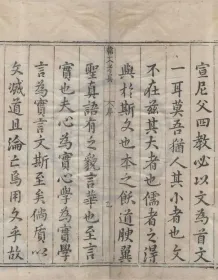 宣尼父四教必以文為首文
一耳莫吾猶人其小者也文
不在茲其大者也儒者之澤
與於斯文也本之飫道腴翼
聖真語有之貌言華也至言
實也夫心為實心學為
言為實言文斯至矣倘質以
文滅道且淪亡烏用文乎故